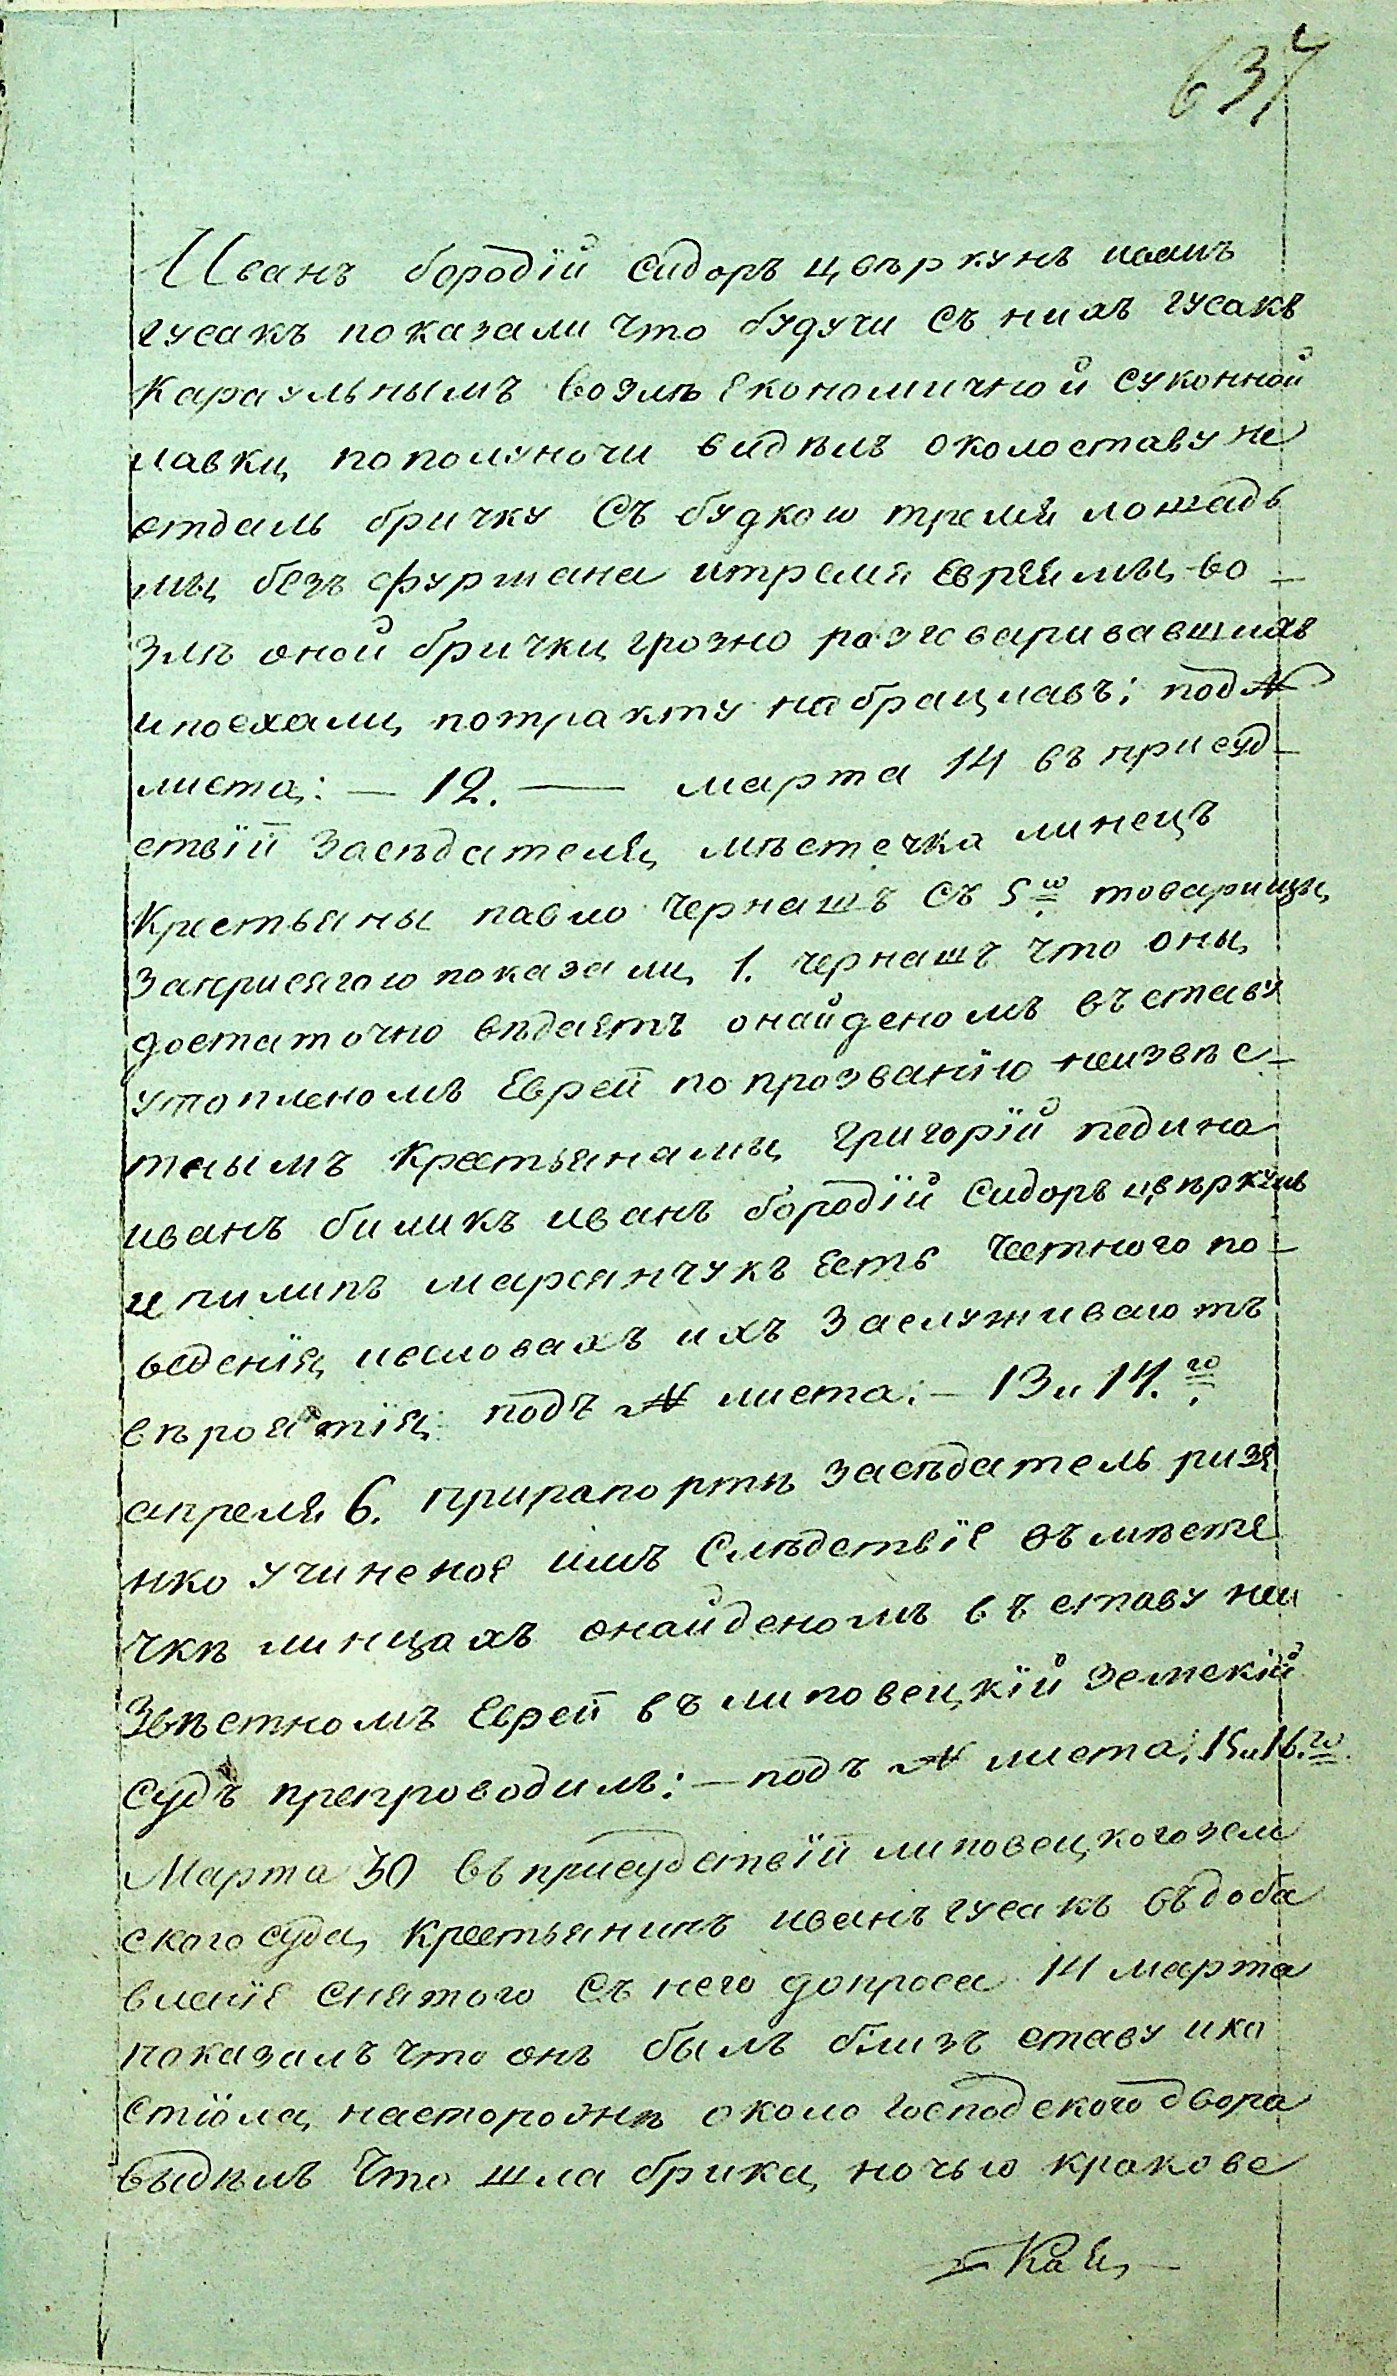 637
Иванъ бородїй сидоръ цвѣркунъ иванъ
гусакъ показали что будучи съ нихъ гусакъ
караульнымъ возлѣ економичной суконной
лавки, пополуночи видѣлъ околоставу не
отдаль бричку съ будкою тремя лошадь
мы, безъ фурмана итремя евреямы, во –
злѣ оной брички, грозно разговаривавшихъ
и поехали, потракту на брацлавъ; под №
листа: – 12. — марта 14 въ присуд–
ствїй засѣдателя, мѣстечка линецъ
крестьяны павло чернашъ съ 5ю товарищы,
заприсягою показали, 1. чернашъ что оны,
достаточно вѣдаетъ онайденомъ въ ставу
утопленомъ еврей по прозванїю неизвѣс–
тнымъ крестьянамы, григорїй педина
иванъ биликъ иванъ бородїй сидоръ цвѣркунъ
и пилипъ марсянчукъ есть честного по–
ведения, ивсловахъ ихъ заслуживаютъ
вѣроятїя; подъ № листа: – 13 и 14.го
апреля 6. прирапортѣ засѣдатель ризе
нко учиненое имъ слѣдствїе въ мѣсте
чкѣ линцахъ онайденомъ въ ставу неи
звѣстномъ еврей въ липовецкїй земскїй
судъ препроводилъ: – подъ № листа; 15 и 16.го
Марта 30 въ присудствїй липовецкого зем
ского суда, крестьянинъ иванъ гусакъ въ доба
вленїе снятого съ него допроса 14 марта
показалъ что онъ былъ близъ ставу и ко
стїола, насторожѣ около господского двора
выдѣлъ что шла брика, ночью кракове
– ская, –